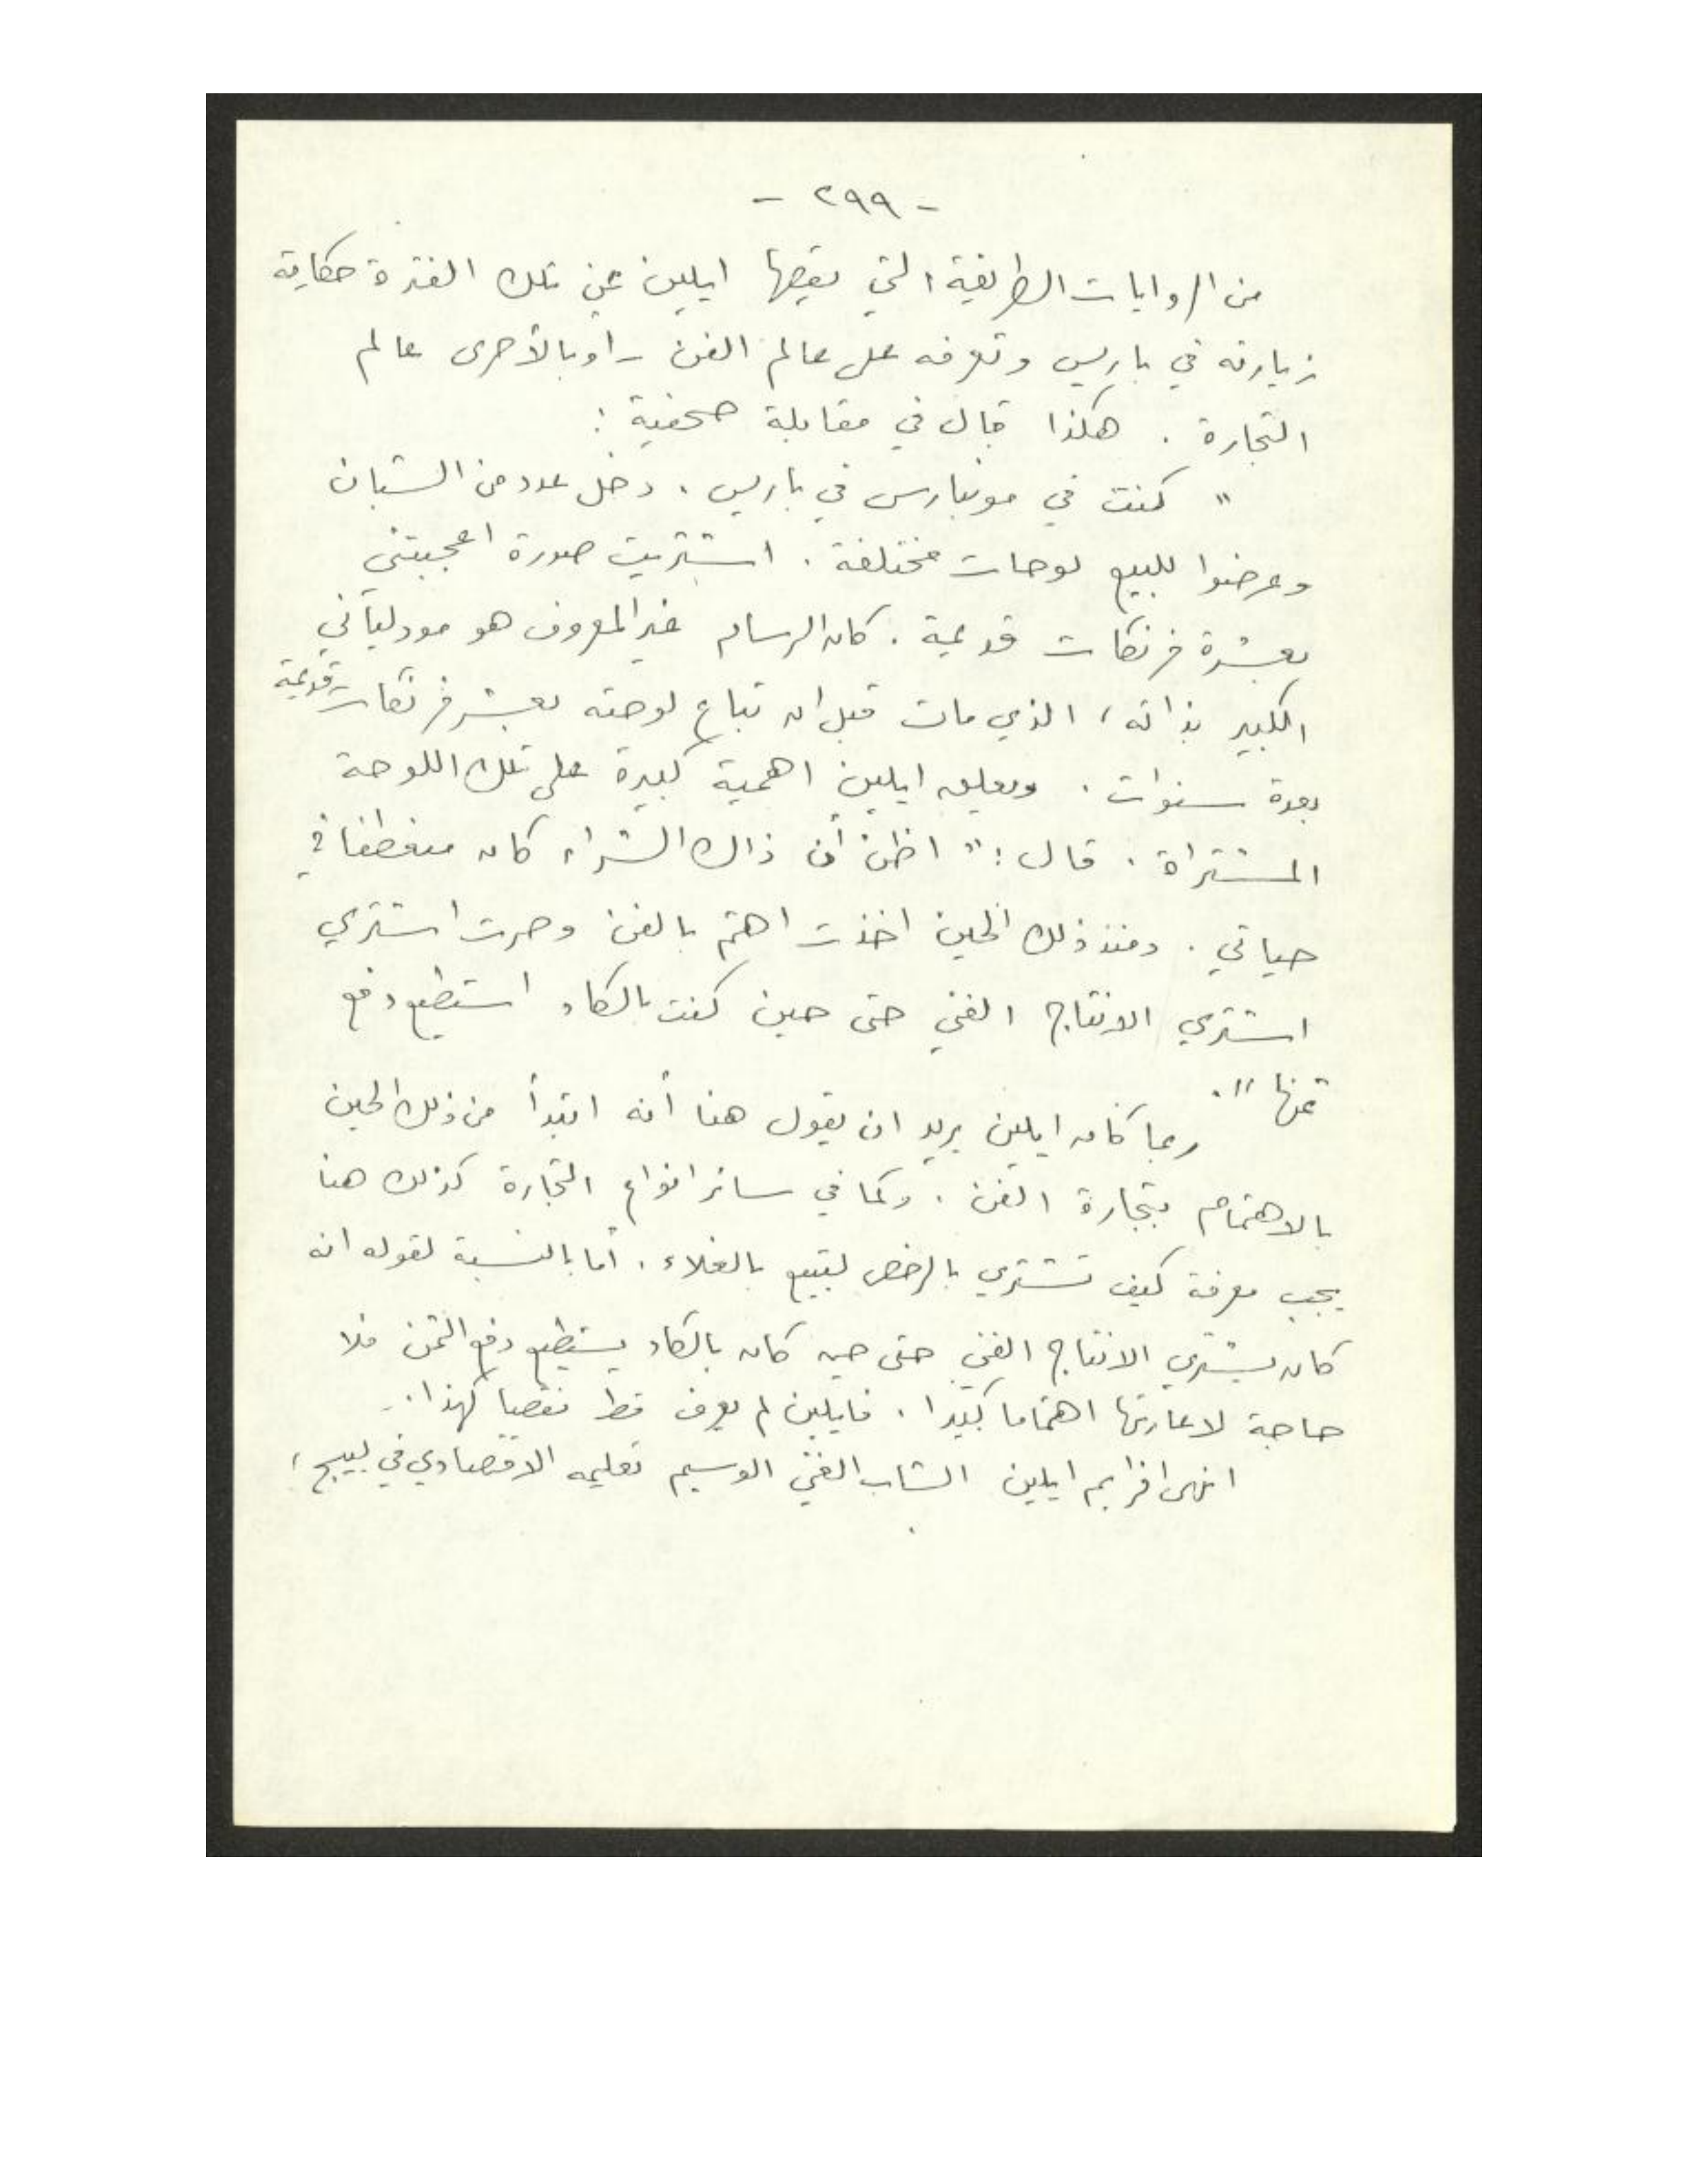 - ٢٩٩ -
من الروايات الطريفة التي يقصها ايلين عن تلك الفترة حكاية
زيارته في باريس وتعرفه على عالم الفن - او بالأحرى عالم
التجارة . هكذا قال في مقابلة صحفية :
" كنت في مونبارس في باريس . دخل عدد من الشبان
وعرضوا للبيع لوحات مختلفة . اشتريت صورة اعجبتني
بعشرة فرنكات قديمة . كان الرسام غير المعروف هو موديلياني
الكبير بذاته ، الذي مات قبل ان تباع لوحته بعشر فرنكات قديمة
بعدة سنوات . ويعلق ايلين اهمية كبيرة على تلك اللوحة
المشتراة . قال : " اظن أن ذاك الشراء كان منعطفا في
حياتي . ومنذ ذلك الحين اخذت اهتم بالفن وصرت استري
اشتري الانتاج الفني حتى حين كنت بالكاد استطيع دفع
ثمنها " .
ربما كان ايلين يريد ان يقول هنا أنه ابتدأ من ذلك الحين
بالاهتمام بتجارة الفن . وكما في سائر انواع التجارة كذلك هنا
يجب معرفة كيف تشتري بالرخص لتبيع بالغلاء . أما بالنسبة لقوله انه
كان يشتري الانتاج الفني حتى حين كان بالكاد يستطيع دفع الثمن فلا
حاجة لاعارتها اهتماما كبيرا . فايلين لم يعرف قط نقصا كهذا .
انهى افرايم ايلين الشاب الغني الوسيم تعليمه الاقتصادي في لييج ،